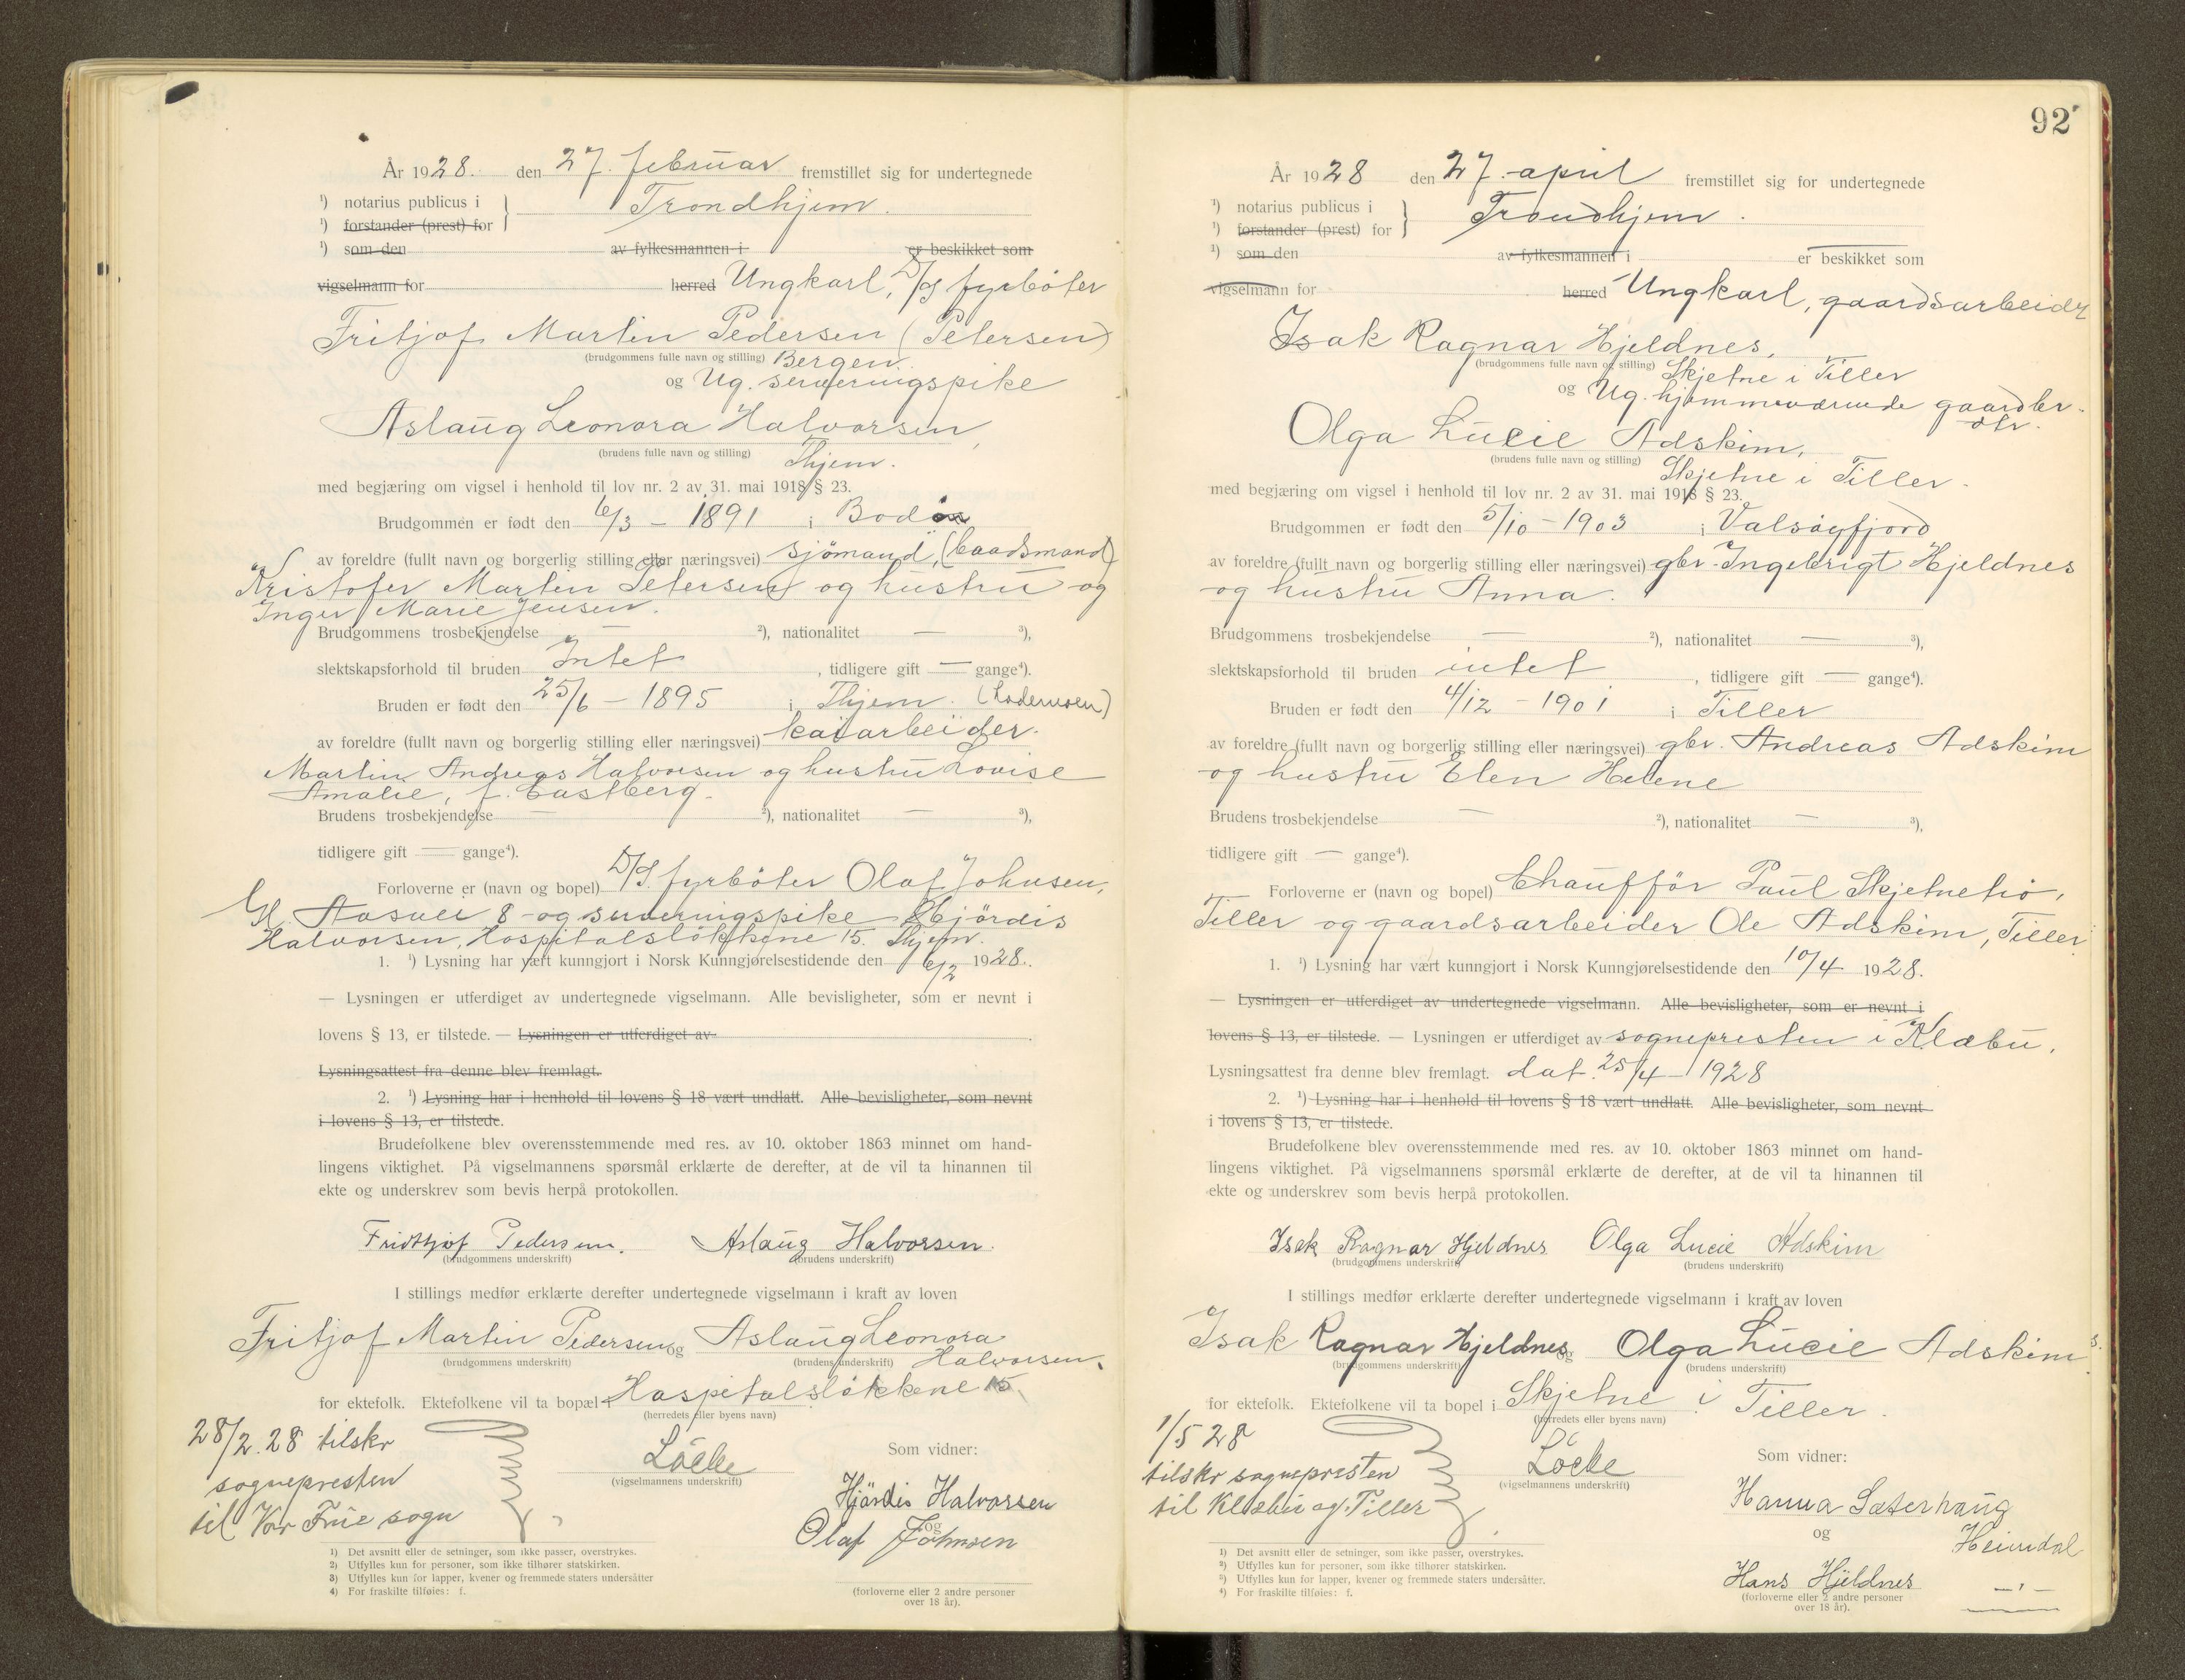 År 1928. den 27. februar fremstillet sig for undertegnede
¹) notarius publicus i
¹) forstander (prest) for } Trondhjem.
¹) som den av fylkesmannen i er beskikket som
vigselmann for herred Ungkarl, D/S fyrböter
Fritjof Martin Pedersen (Petersen)
(brudgommens fulle navn og stilling) Bergen.
og Ug. serveringspike
Aslaug Leonora Halvorsen,
(brudens fulle navn og stilling) Thjem.
med begjæring om vigsel i henhold til lov nr. 2 av 31. mai 1918 § 23.
Brudgommen er født den 6/3 - 1891 i Bodö
av foreldre (fullt navn og borgerlig stilling eller næringsvei) sjömand, (baadsmand)
Kristofer Martin Petersen og hustru og
Inger Marie Jensen.
Brudgommens trosbekjendelse — ²), nationalitet — ³),
slektskapsforhold til bruden Intet, tidligere gift — gange⁴).
Bruden er født den 25/6 - 1895 i Thjem. (Lademoen)
av foreldre (fullt navn og borgerlig stilling eller næringsvei) kaiarbeider.
Martin Andreas Halvorsen og hustru Lovise
Amalie, f. Eastberg.
Brudens trosbekjendelse — ²), nationalitet — ³),
tidligere gift — gange⁴).
Forloverne er (navn og bopel) D/S. fyrböter Olaf Johnsen,
Gl. Aasvei 8 og serveringspike Hjördis
Halvorsen, Hospitalslökkene 15. Thjem.
1. ¹) Lysning har vært kunngjort i Norsk Kunngjørelsestidende den 6/2 1928.
— Lysningen er utferdiget av undertegnede vigselmann. Alle bevisligheter, som er nevnt i
lovens § 13, er tilstede. — Lysningen er utferdiget av
Lysningsattest fra denne blev fremlagt.
2. ¹) Lysning har i henhold til lovens § 18 vært undlatt. Alle bevisligheter, som nevnt
i lovens § 13, er tilstede.
Brudefolkene blev overensstemmende med res. av 10. oktober 1863 minnet om hand-
lingens viktighet. På vigselmannens spørsmål erklærte de derefter, at de vil ta hinannen til
ekte og underskrev som bevis herpå protokollen.
Fridthjof Pedersen. Aslaug Halvorsen.
(brudgommens underskrift) (brudens underskrift)
I stillings medfør erklærte derefter undertegnede vigselmann i kraft av loven
Fritjof Martin Pedersen og Aslaug Leonora
(brudgommens underskrift) (brudens underskrift) Halvorsen
for ektefolk. Ektefolkene vil ta bopæl Hospitalslökkene 15
(herredets eller byens navn)
28/2.28 tilskr
sognepresten
til Vor Frue sogn
Löcke
(vigselmannens underskrift)
Som vidner:
Hjördis Halvorsen
og
Olaf Johnsen
(forloverne eller 2 andre personer
over 18 år).
1) Det avsnitt eller de setninger, som ikke passer, overstrykes.
2) Utfylles kun for personer, som ikke tilhører statskirken.
3) Utfylles kun for lapper, kvener og fremmede staters undersåtter
4) For fraskilte tilføies: f.
92
År 1928 den 27. april fremstillet sig for undertegnede
¹) notarius publicus i
¹) forstander (prest) for } Trondhjem.
¹) som den av fylkesmannen i er beskikket som
vigselmann for herred Ungkarl, gaardsarbeider
Isak Ragnar Hjeldnes,
(brudgommens fulle navn og stilling) Skjetne i Tiller
og Ug. hjemmeværende gaardbr.
dtr.
Olga Lucie Adskim,
(brudens fulle navn og stilling) Skjetne i Tiller.
med begjæring om vigsel i henhold til lov nr. 2 av 31. mai 1918 § 23.
Brudgommen er født den 5/10 - 1903 i Valsöyfjord
av foreldre (fullt navn og borgerlig stilling eller næringsvei) gbr. Ingebrigt Hjeldnes
og hustru Anna.
Brudgommens trosbekjendelse — ²), nationalitet — ³),
slektskapsforhold til bruden intet, tidligere gift — gange⁴).
Bruden er født den 4/12 - 1901 i Tiller
av foreldre (fullt navn og borgerlig stilling eller næringsvei) gbr. Andreas Adskim
og hustru Elen Helene
Brudens trosbekjendelse — ²), nationalitet — ³),
tidligere gift — gange⁴).
Forloverne er (navn og bopel) Chaufför Paul Skjetnetrö,
Tiller og gaardsarbeider Ole Adskim, Tiller
1. ¹) Lysning har vært kunngjort i Norsk Kunngjørelsestidende den 10/4 1928.
— Lysningen er utferdiget av undertegnede vigselmann. Alle bevisligheter, som er nevnt i
lovens § 13, er tilstede. — Lysningen er utferdiget av sognepresten i Klæbu.
Lysningsattest fra denne blev fremlagt. dat. 25/4 - 1928
2. ¹) Lysning har i henhold til lovens § 18 vært undlatt. Alle bevisligheter, som nevnt
i lovens § 13, er tilstede.
Brudefolkene blev overensstemmende med res. av 10. oktober 1863 minnet om hand-
lingens viktighet. På vigselmannens spørsmål erklærte de derefter, at de vil ta hinannen til
ekte og underskrev som bevis herpå protokollen.
Isak Ragnar Hjeldnes Olga Lucie Adskim
(brudgommens underskrift) (brudens underskrift)
I stillings medfør erklærte derefter undertegnede vigselmann i kraft av loven
Isak Ragnar Hjeldnes og Olga Lucie Adskim
(brudgommens underskrift) (brudens underskrift)
for ektefolk. Ektefolkene vil ta bopel i Skjetne i Tiller.
(herredets eller byens navn)
1/5 28
tilskr sognepresten
til Klæbu og Tiller
Löcke
(vigselmannens underskrift)
Som vidner:
Hanna Sæterhaug
og Heimdal
Hans Hjeldnes — " —
(forloverne eller 2 andre personer
over 18 år).
¹) Det avsnitt eller de setninger, som ikke passer, overstrykes.
²) Utfylles kun for personer, som ikke tilhører statskirken.
³) Utfylles kun for lapper, kvener og fremmede staters undersåtter.
⁴) For fraskilte tilføies: f.